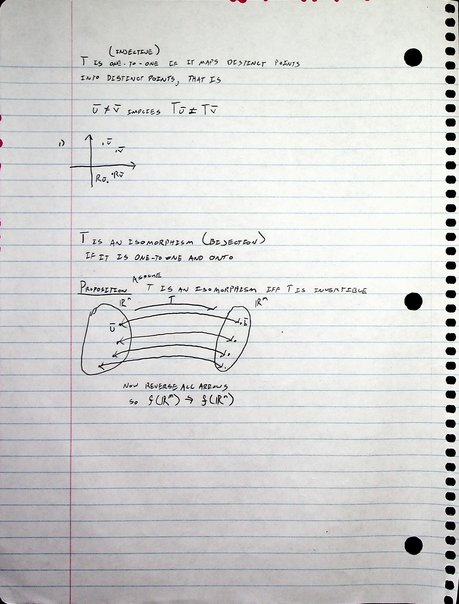 (INJECTIVE)
T IS ONE-TO-ONE IF IT MAPS DISTINCT POINTS
INTO DISTINCT POINTS, THAT IS
ū ≠ v̄ IMPLIES Tū ≠ Tv̄
1)
ū
v̄
Rū Rv̄
T IS AN ISOMORPHISM (BIJECTION)
IF IT IS ONE-TO-ONE AND ONTO
ASSUME
PROPOSITION T IS AN ISOMORPHISM IFF T IS INVERTIBLE
ℝⁿ T ℝⁿ
ū b̄
NOW REVERSE ALL ARROWS
SO f(ℝⁿ) → f(ℝⁿ)